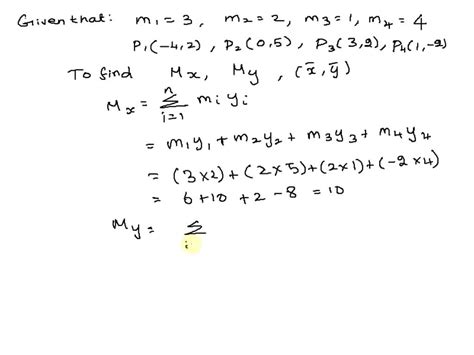 Given that: m₁ = 3, m₂ = 2, m₃ = 1, m₄ = 4
P₁(-4,2), P₂(0,5), P₃(3,2), P₄(1,-2)
To find Mx, My, (x̄, ȳ)
Mx = n∑i=1 mᵢyᵢ
= m₁y₁ + m₂y₂ + m₃y₃ + m₄y₄
= (3×2) + (2×5) + (2×1) + (-2×4)
= 6+10 +2 -8 = 10
My = ∑i